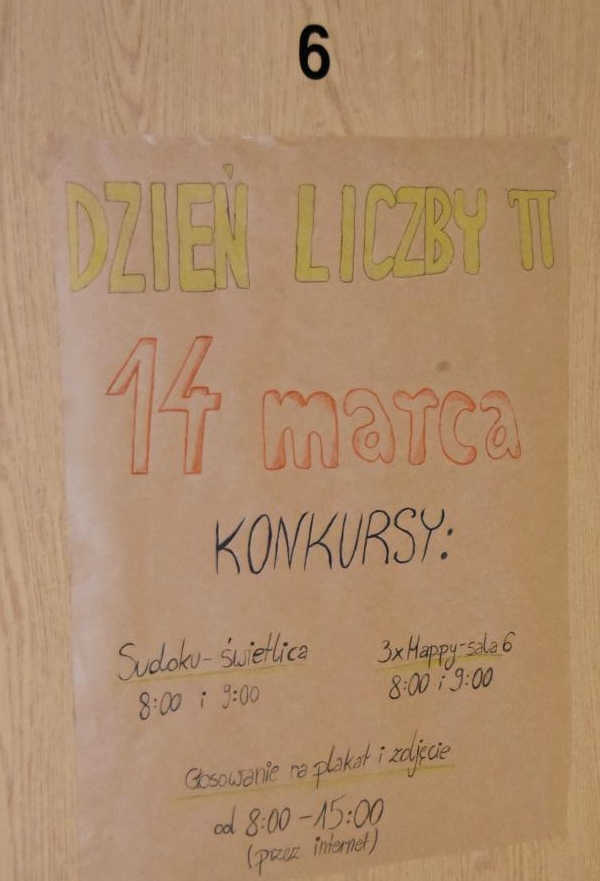 6
DZIEŃ LICZBY π
14 marca
KONKURSY:
Sudoku - świetlica
8:00 i 9:00
3xHappy-sala 6
8:00 i 9:00
Głosowanie na plakat i zdjęcie
od 8:00 - 15:00
(przez internet)